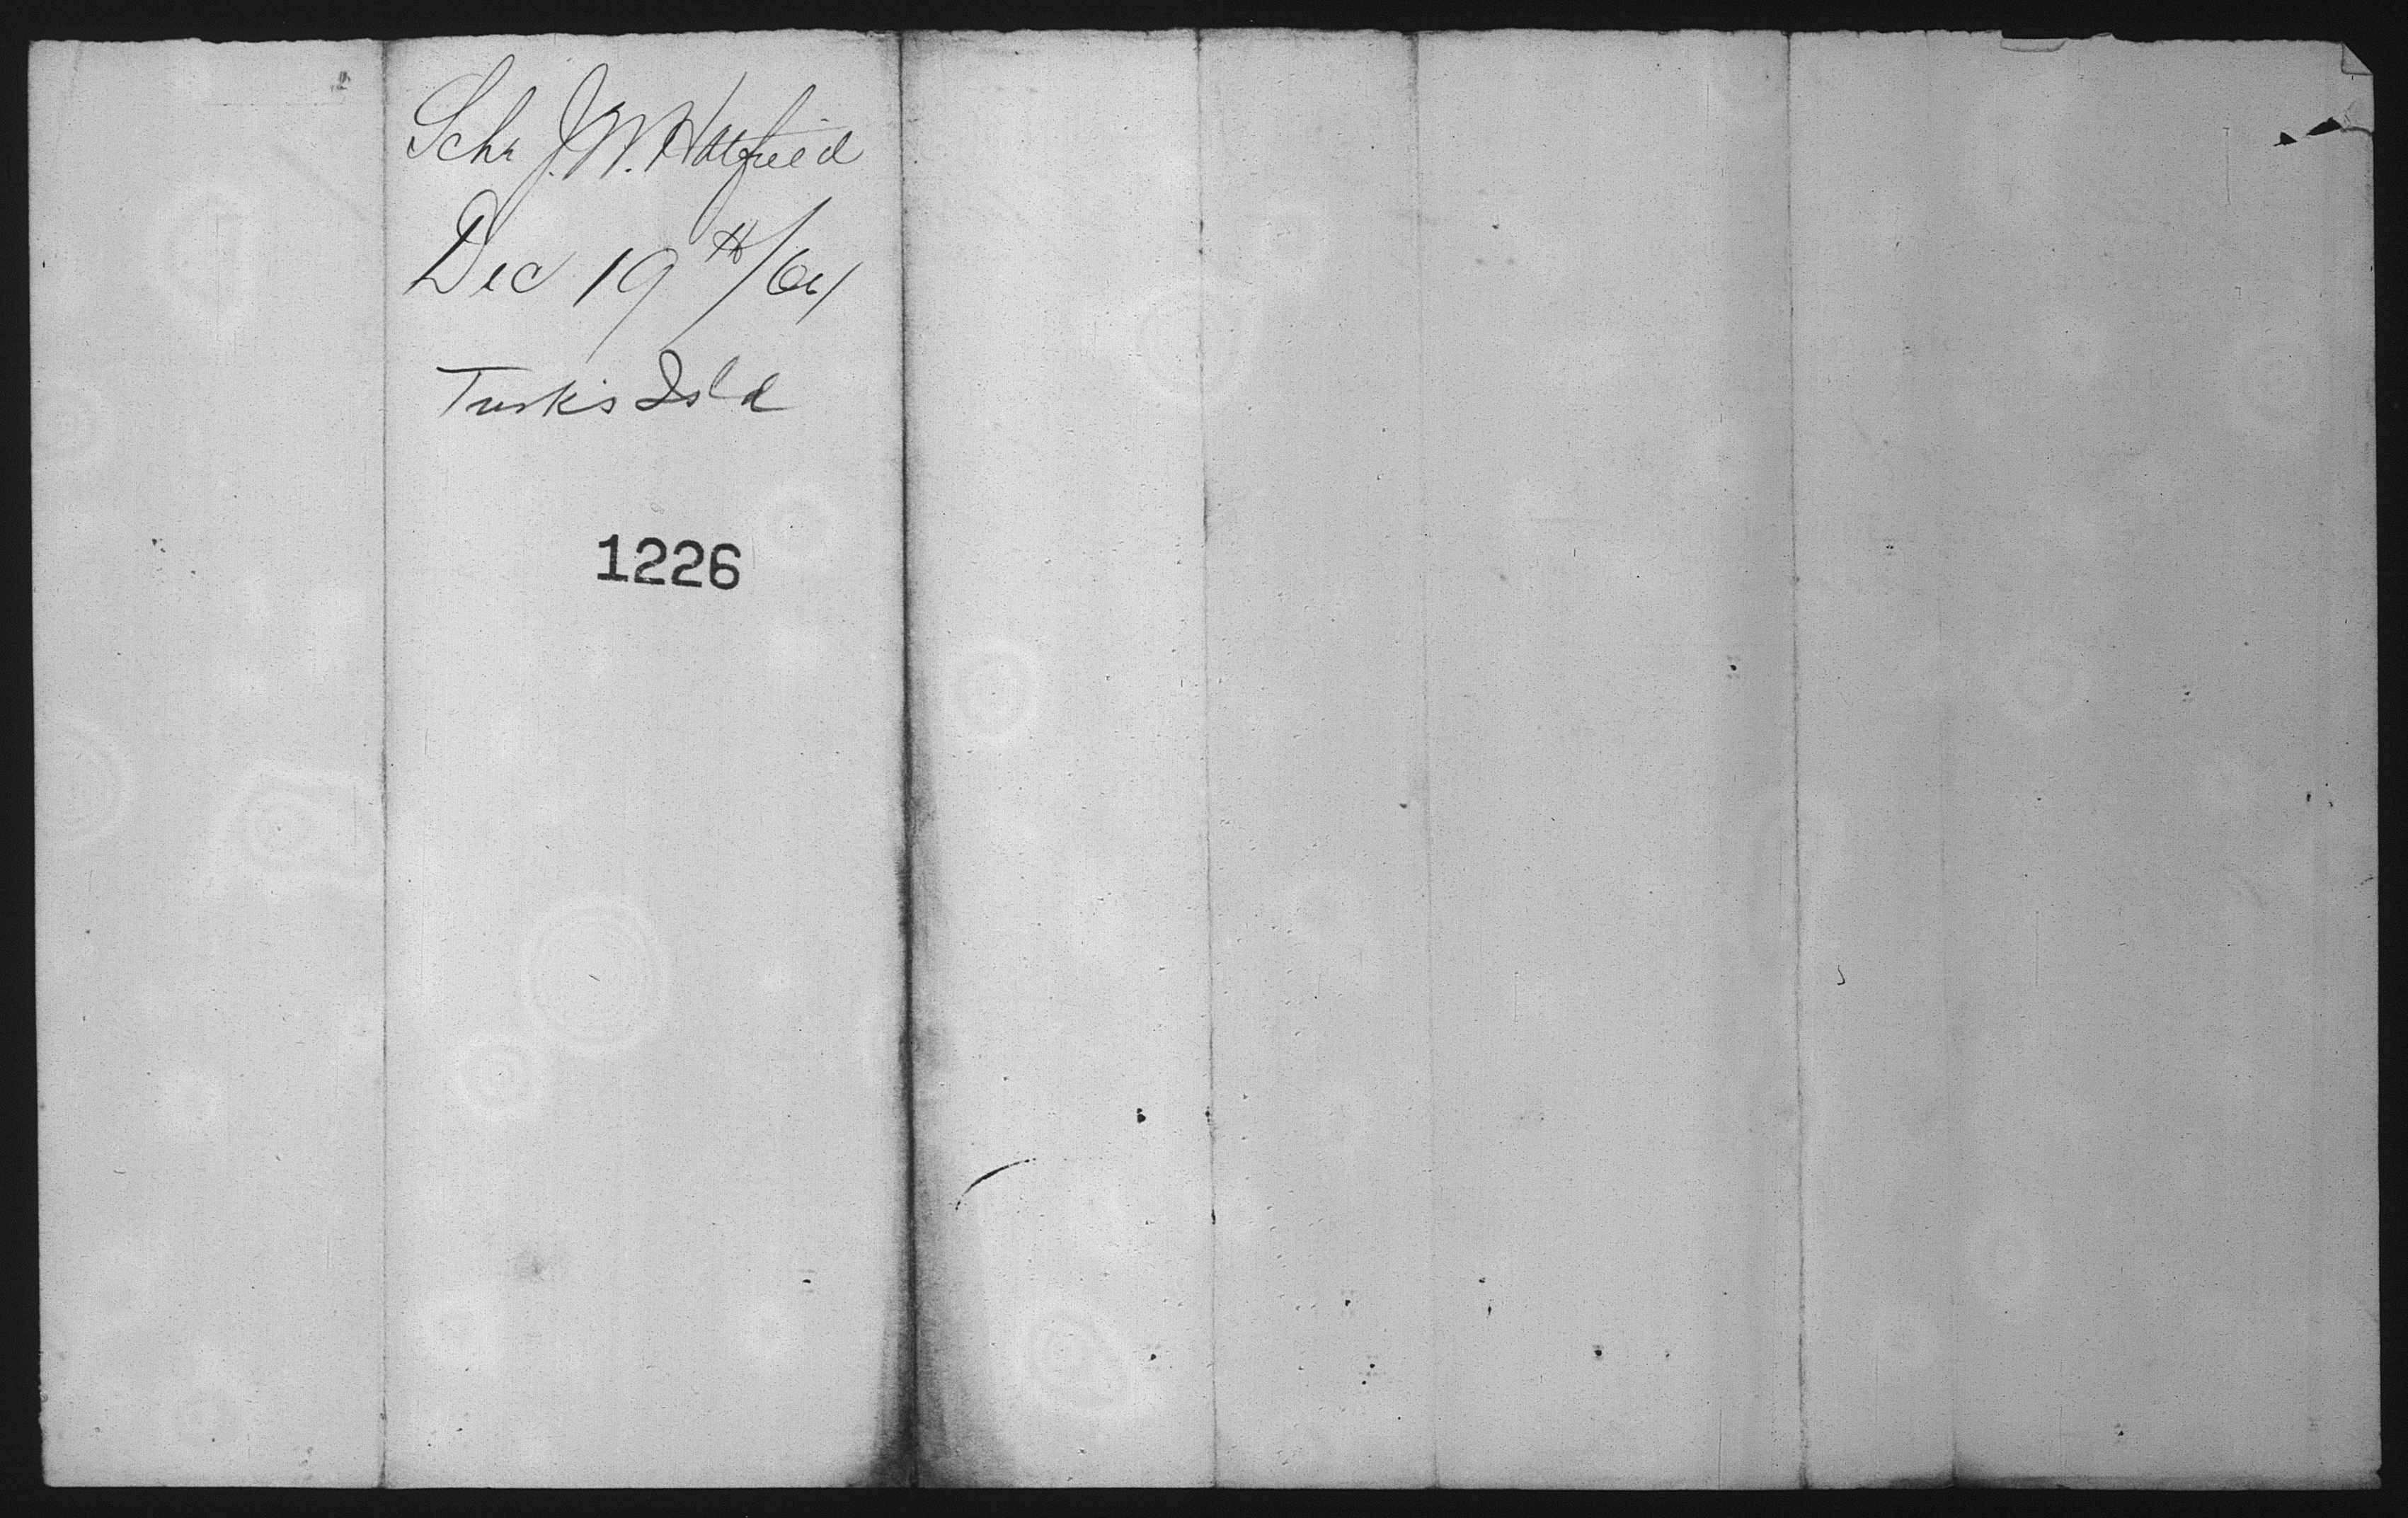 Schr J. W. Hatfield
Dec 19th/64
Turks Isld
1226